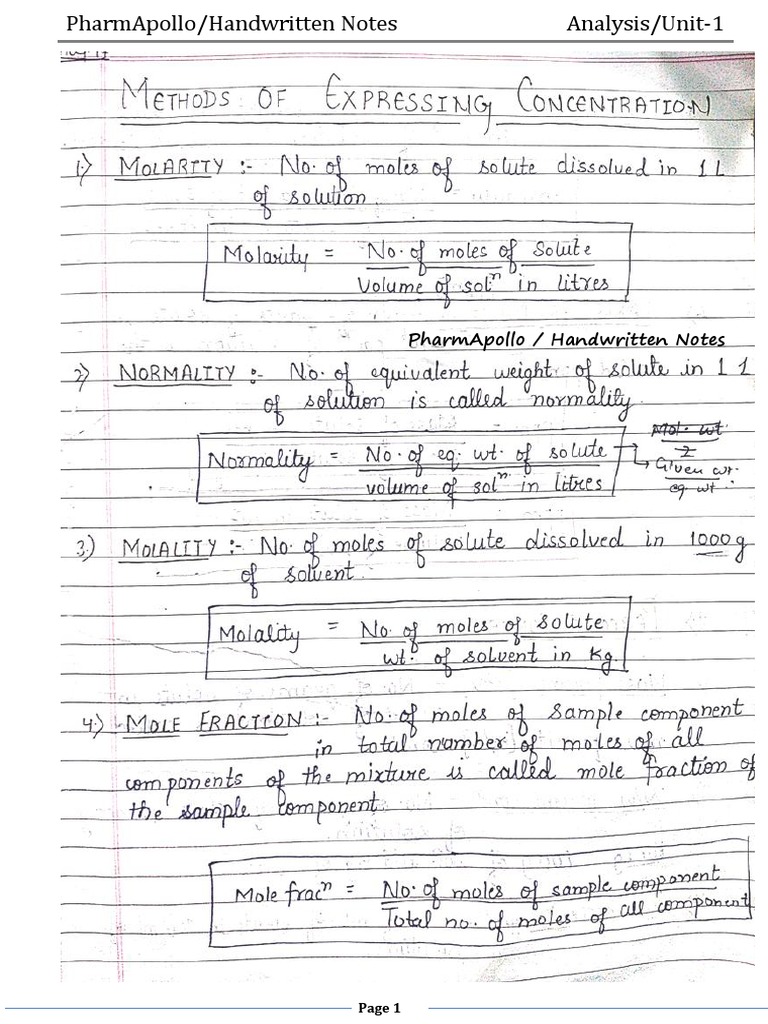 PharmApollo/Handwritten Notes Analysis/Unit-1
METHODS OF EXPRESSING CONCENTRATION
1.) MOLARITY :- No. of moles of solute dissolved in 1 L
of solution.
Molarity = No. of moles of Solute
Volume of solⁿ in litres
PharmApollo / Handwritten Notes
2) NORMALITY :- No. of equivalent weight of solute in 1 l
of solution is called normality.
Mol. wt
2
Normality = No. of eq. wt. of solute → Given wt.
volume of solⁿ in litres eq wt.
3.) MOLALITY :- No. of moles of solute dissolved in 1000g
of solvent.
Molality = No. of moles of solute
wt. of solvent in Kg.
4.) MOLE FRACTION :- No. of moles of sample component
in total number of moles of all
components of the mixture is called mole fraction of
the sample component.
Mole fracⁿ = No. of moles of sample component
Total no. of moles of all component
Page 1